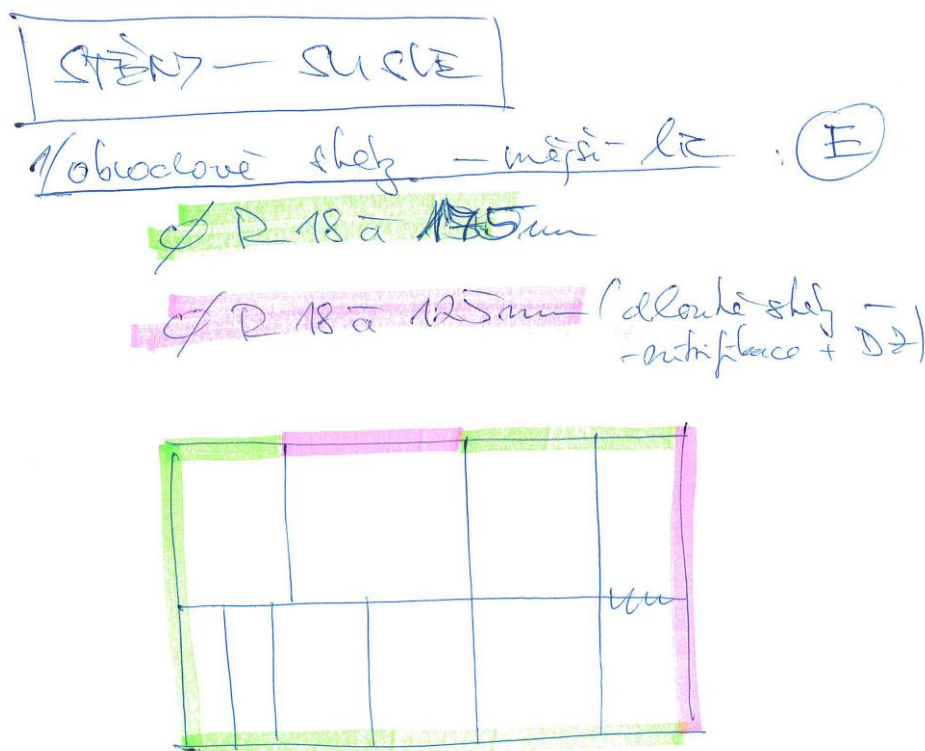 STĚNY — SVISLÉ
1/ obvodové stěny - vnější líc : E
Ø R 18 á 175mm
Ø R 18 á 125mm (dlouhé stěny -
- nitrifikace + DŽ)